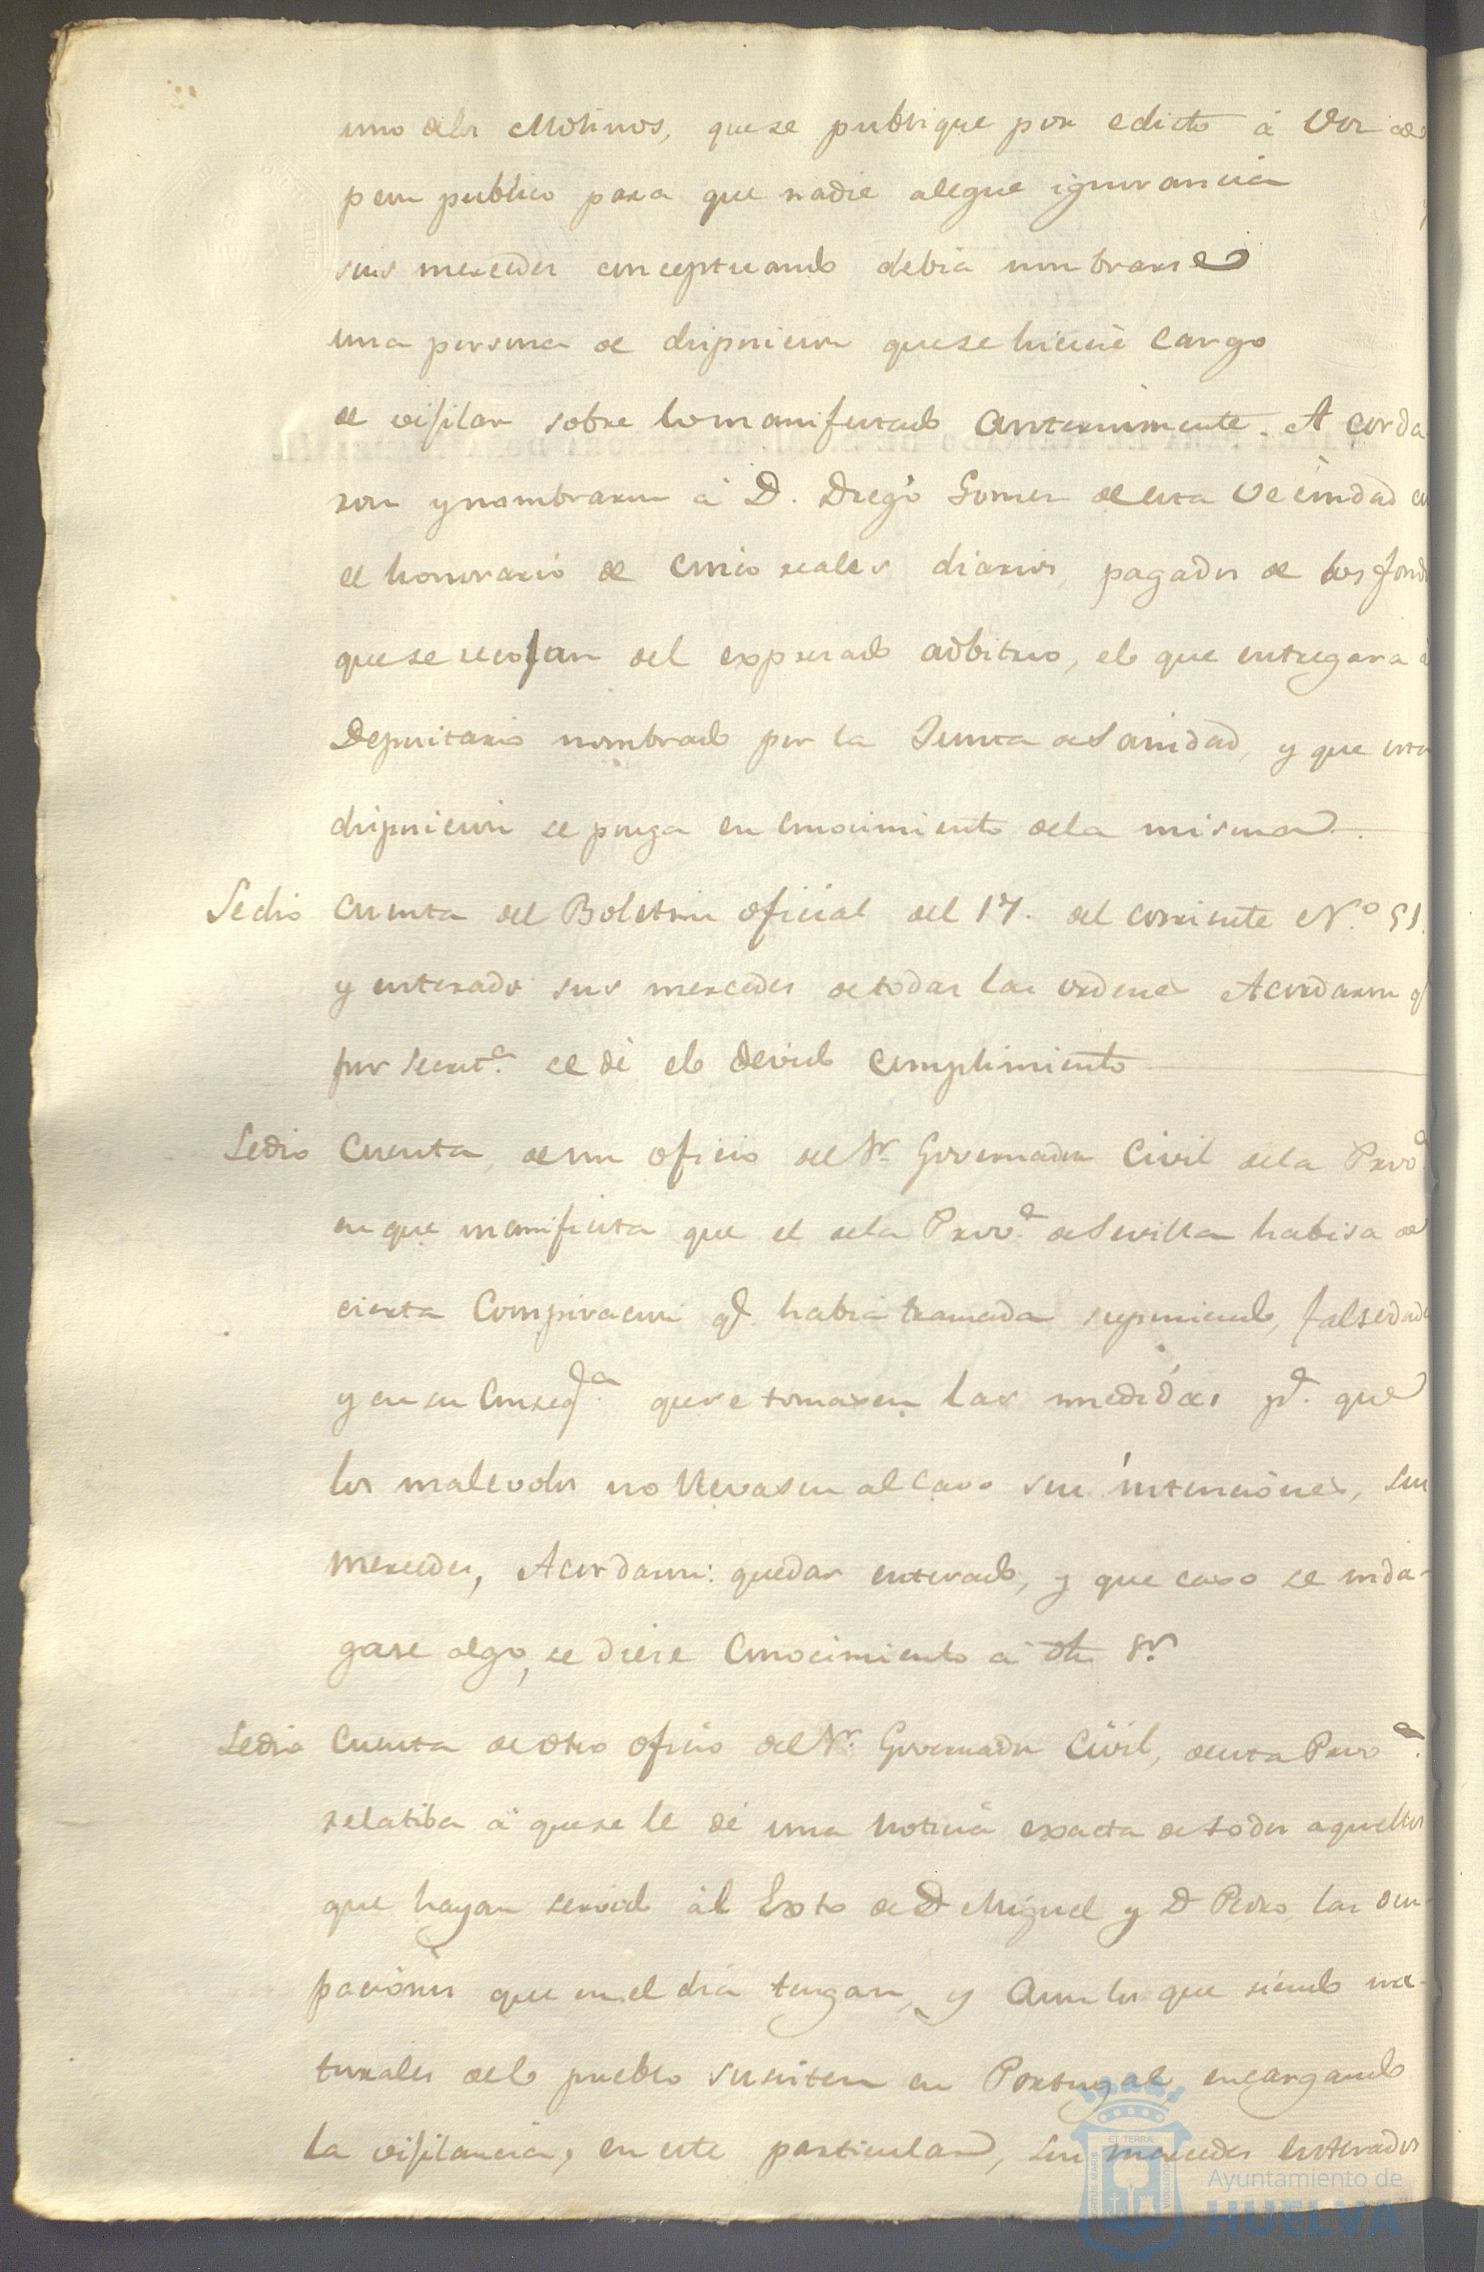 uno delos Molinos, quese publique por edicto á Vor de
peon publico para que nadie alegue ignorancia
sus mercedes conceptuando debia nombrarse
una persona de disposicion quese hiciese cargo
de visilar sobre lo manifestado anteriormente. Acorda
ron y nombraron á D. Diego Gomez de esta Vecindad con
el honorario de cinco reales diarios pagados de los fond
quese recojan del expresado adbitrio, elo que entregara á
Depositario nombrado por la Junta de Sanidad, y que esta
disposicion se ponga en conocimiento dela misma
Sedio cuenta del Boletin oficial del 17. del corriente N.º 51.
y enterados sus mercedes de todas las ordenes Acordaron q
por Secret.ª se dé elo devido cumplimiento
Sedio Cuenta, de un oficio del Sr Governador Civil dela Prov.ª
en que manifiesta que el dela Prov.ª de Sevilla habisa de
cierta Conspiracion q.e habia tramada suponiendo, falsedade
y en su Conseq.ª que se tomasen las medidas p.ª que
los malevolos no llevasen al cavo sus intenciones, sus
mercedes, Acordaron: quedar enterado, y que caso se inda-
gase algo, se diese Conocimiento á dho Sr.
Sedio Cuenta de otro oficio del Sr. Governador Civil, de esta Prov.ª
relatiba á quese le dé una noticia exacta de todos aquellos
que hayan servido ál Exto de D Miguel y D Pedro, las ocu-
paciones que en el dia tengan, y aun los que siendo na-
turales delo pueblo susiten en Portugal, encargando
la visilancia, en este particular, sus mercedes Enterados
Ayuntamiento de
HUELVA